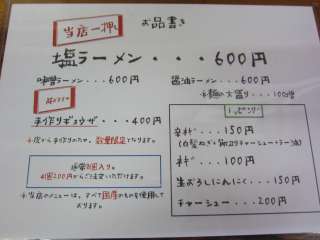 お品書き
当店一押し
塩ラーメン・・・600円
味噌ラーメン...600円
醤油ラーメン...600円
*麺の大盛り...100増
手作りギョウザ...400円
*皮から手作りのため、数量限定となります。
通常8個入り。
4個200円からご注文いただけます。
*当店のメニューは、すべて国産のものを使用して
おります。
トッピング
辛ネギ...150円
ネギ...100円
生おろしにんにく...150円
チャーシュー...200円